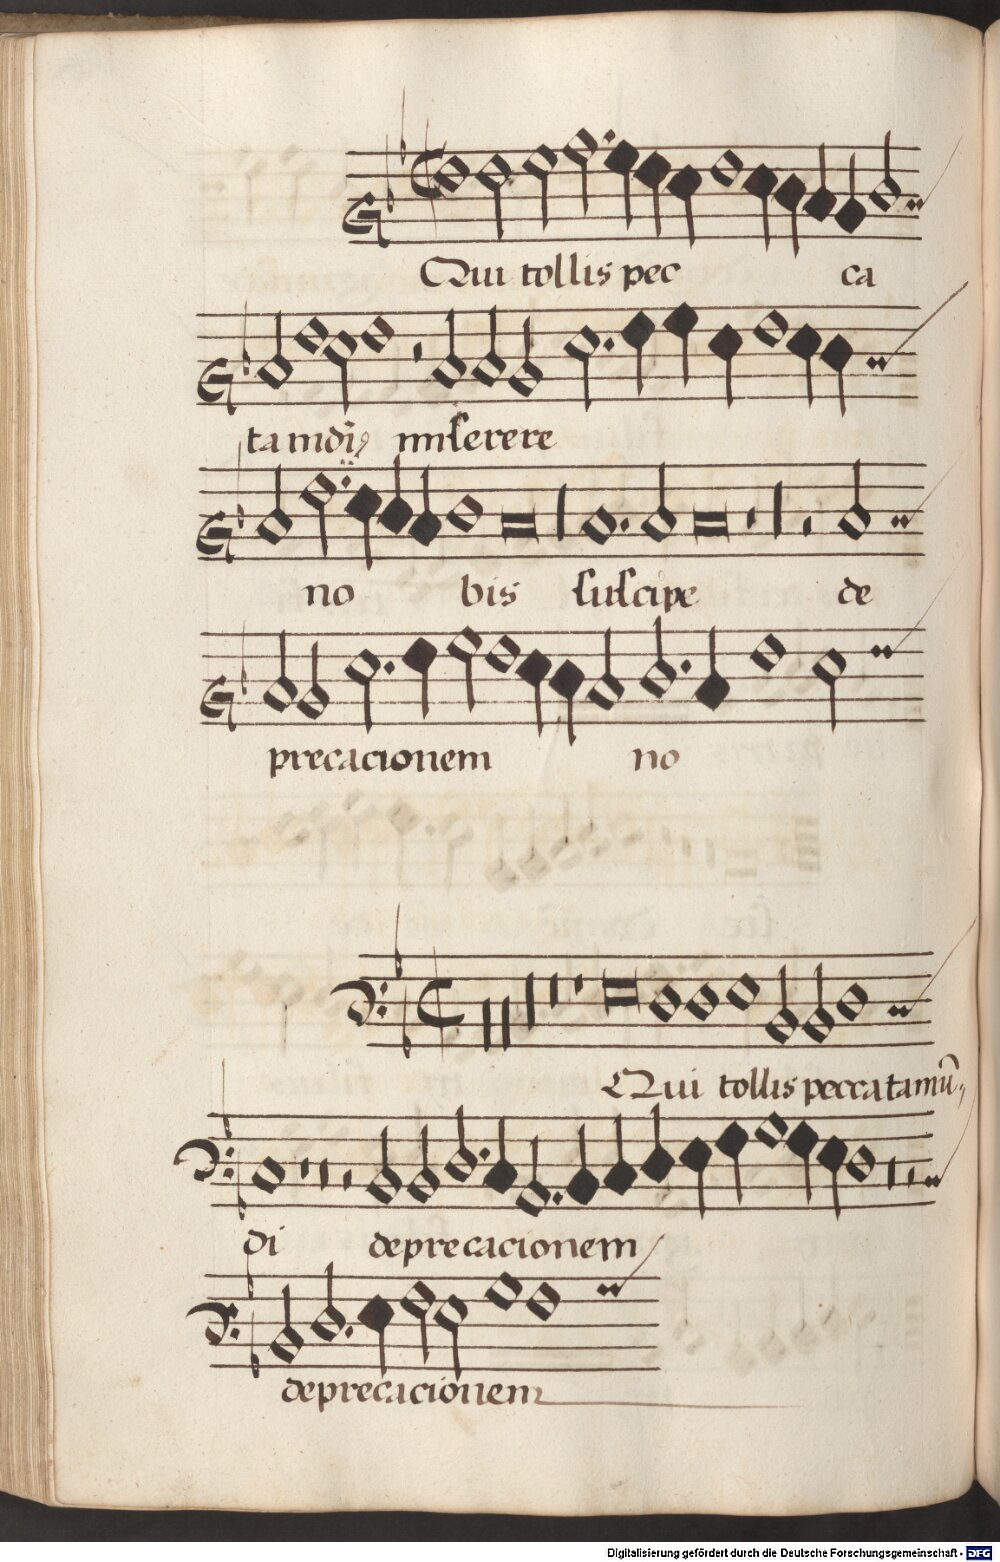 Qui tollis pec ca
ta mūdi miserere
no bis suscipe de
precacionem no
Qui tollis peccata mū
di deprecacionem
deprecacionem
Digitalisierung gefördert durch die Deutsche Forschungsgemeinschaft - DFG